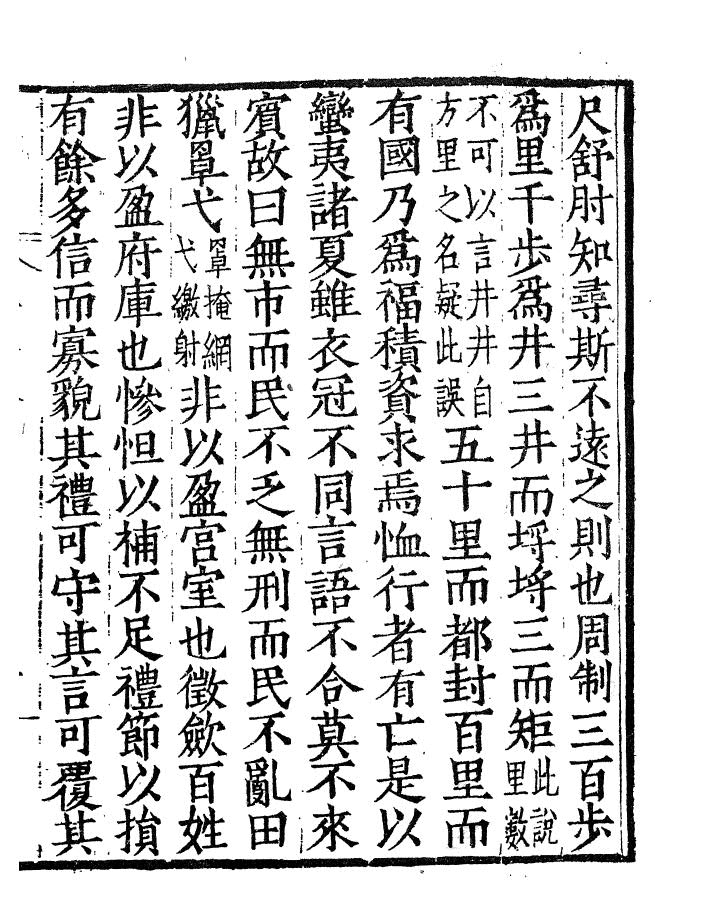 尺舒肘知尋斯不遠之則也周制三百步
爲里千步爲井三井而埒埒三而矩此說里數
不可以言井井自方里之名疑此誤五十里而都封百里而
有國乃爲福積資求焉恤行者有亡是以
蠻夷諸夏雖衣冠不同言語不合莫不來
賓故曰無市而民不乏無刑而民不亂田
獵罩弋罩掩網弋繳射非以盈宮室也徵歛百姓
非以盈府庫也慘怛以補不足禮節以損
有餘多信而寡貌其禮可守其言可覆其